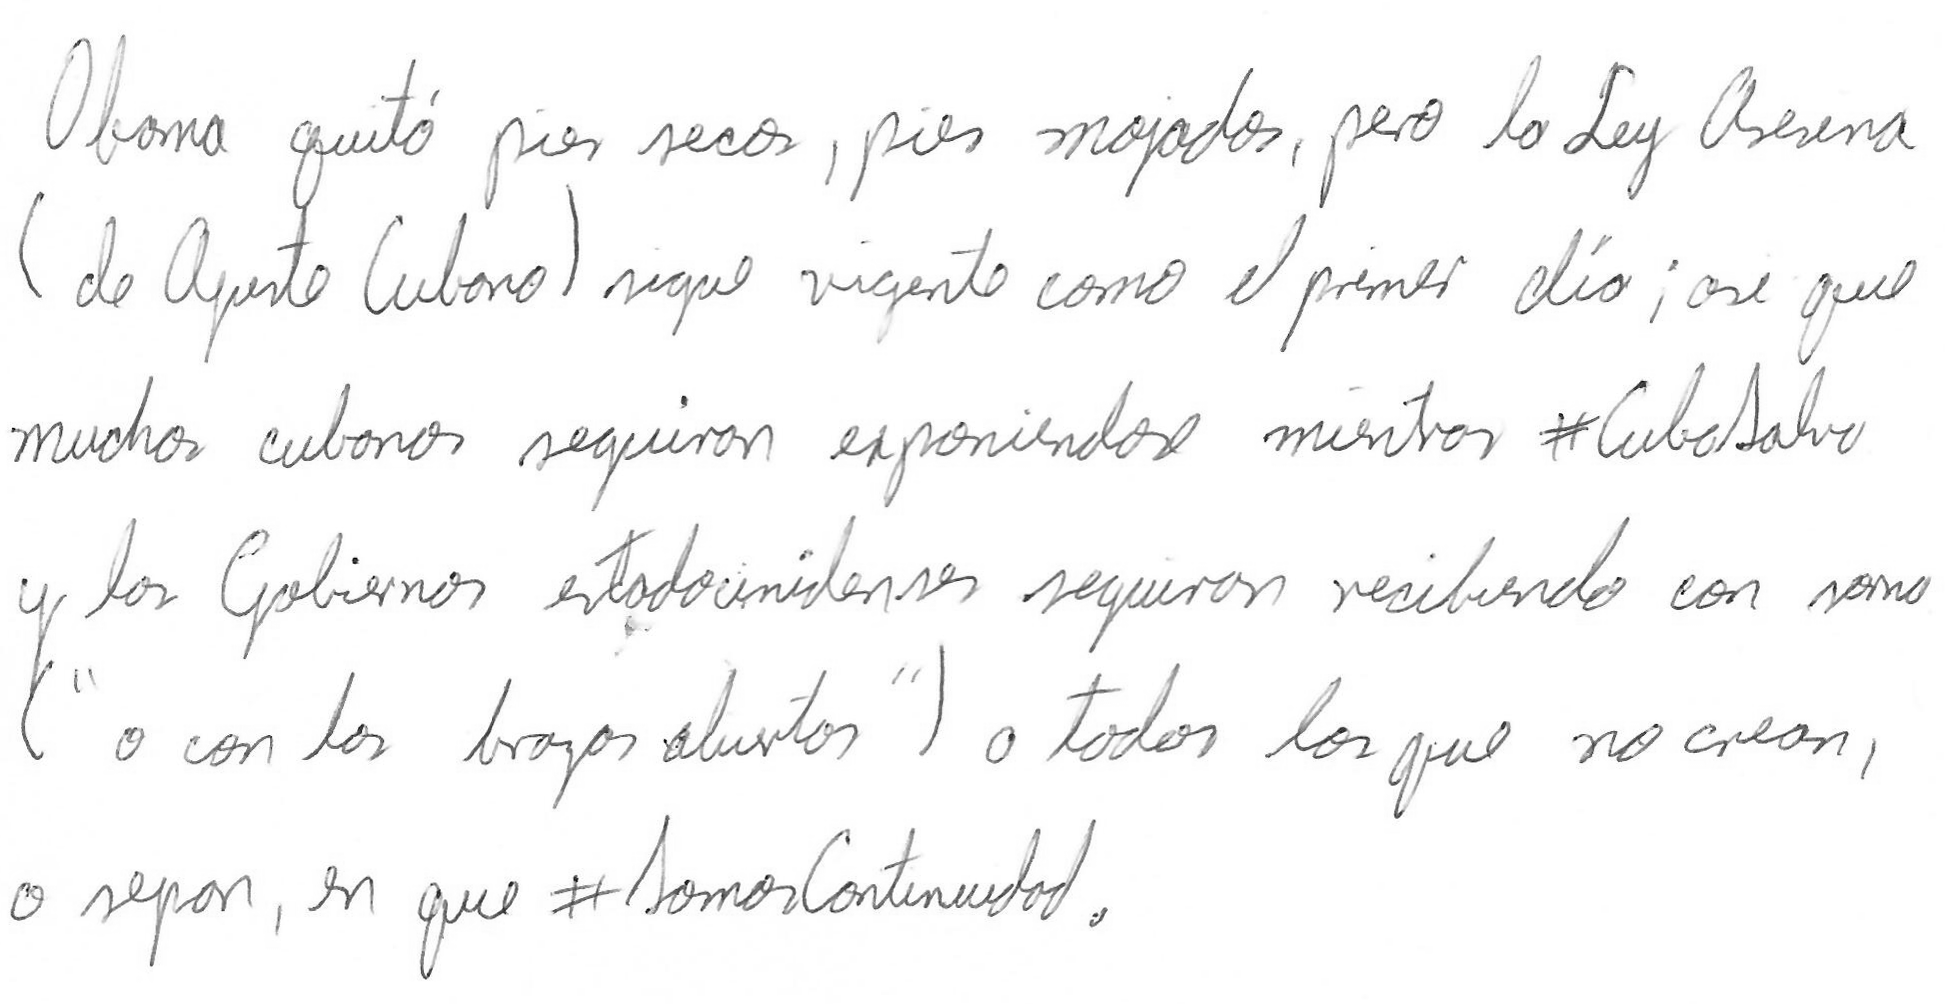 Obama quitó pies secos, pies mojados, pero la Ley Asesina
(de Ajuste Cubano) sigue vigente como el primer día; asi que
muchos cubanos seguiran exponiendose mientras #CubaSalva
y los Gobiernos estadounidenses seguiran recibiendo con sorna
("o con los brazos abiertos") a todos los que no crean,
o sepan, en que #SomosContinuidad.